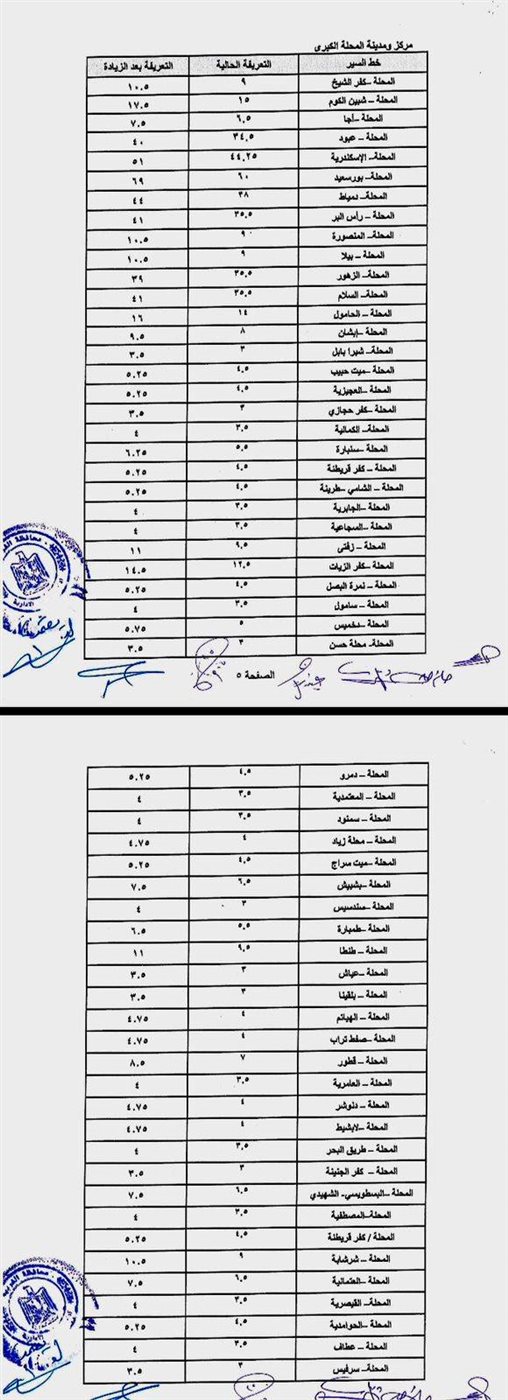 مركز ومدينة المحلة الكبرى
خط السير التعريفة الحالية التعريفة بعد الزيادة
المحلة – كفر الشيخ ٩ ١٠.٥
المحلة – شبين الكوم ١٥ ١٧.٥
المحلة – أجا ٦.٥ ٧.٥
المحلة – عبود ٣٤.٥ ٤٠
المحلة – الإسكندرية ٤٤.٢٥ ٥١
المحلة – بورسعيد ٦٠ ٦٩
المحلة – دمياط ٣٨ ٤٤
المحلة – رأس البر ٣٥.٥ ٤١
المحلة – المنصورة ٩ ١٠.٥
المحلة – بيلا ٩ ١٠.٥
المحلة – الزهور ٣٥.٥ ٣٩
المحلة – السلام ٣٥.٥ ٤١
المحلة – الحامول ١٤ ١٦
المحلة – إبشان ٨ ٩.٥
المحلة – شبرا بابل ٣ ٣.٥
المحلة – ميت حبيب ٤.٥ ٥.٢٥
المحلة – العجيزية ٤.٥ ٥.٢٥
المحلة – كفر حجازي ٣ ٣.٥
المحلة – الكمالية ٣.٥ ٤
المحلة – سنبارة ٥.٥ ٦.٢٥
المحلة – كفر قريطنة ٤.٥ ٥.٢٥
المحلة – الشامي – طرينة ٤.٥ ٥.٢٥
المحلة – الجابرية ٣.٥ ٤
المحلة – السجاعية ٣.٥ ٤
المحلة – زفتى ٩.٥ ١١
المحلة – كفر الزيات ١٢.٥ ١٤.٥
المحلة – نمرة البصل ٤.٥ ٥.٢٥
المحلة – سامول ٣.٥ ٤
المحلة – دخميس ٥ ٥.٧٥
المحلة – محلة حسن ٣ ٣.٥
الصفحة ٥
المحلة – دمرو ٤.٥ ٥.٢٥
المحلة – المعتمدية ٣.٥ ٤
المحلة – سمنود ٣.٥ ٤
المحلة – محلة زياد ٤ ٤.٧٥
المحلة – ميت سراج ٤.٥ ٥.٢٥
المحلة – بشبيش ٦.٥ ٧.٥
المحلة – سندسيس ٣ ٤
المحلة – طمبارة ٥.٥ ٦.٥
المحلة – طنطا ٩.٥ ١١
المحلة – عياش ٣ ٣.٥
المحلة – بلقينا ٣ ٣.٥
المحلة – الهياتم ٤ ٤.٧٥
المحلة – صفط تراب ٤ ٤.٧٥
المحلة – قطور ٧ ٨.٥
المحلة – العامرية ٣.٥ ٤
المحلة – دنوشر ٤ ٤.٧٥
المحلة – لابشيط ٤ ٤.٧٥
المحلة – طريق البحر ٣.٥ ٤
المحلة – كفر الجنينة ٣ ٣.٥
المحلة – البسطويسي – الشهيدي ٦.٥ ٧.٥
المحلة – المصطفية ٣.٥ ٤
المحلة / كفر قريطنة ٤.٥ ٥.٢٥
المحلة – شرشابة ٩ ١٠.٥
المحلة – العثمانية ٦.٥ ٧.٥
المحلة – القيصرية ٣.٥ ٤
المحلة – الحوامدية ٤.٥ ٥.٢٥
المحلة – عطاف ٣.٥ ٤
المحلة – سرفيس ٣ ٣.٥